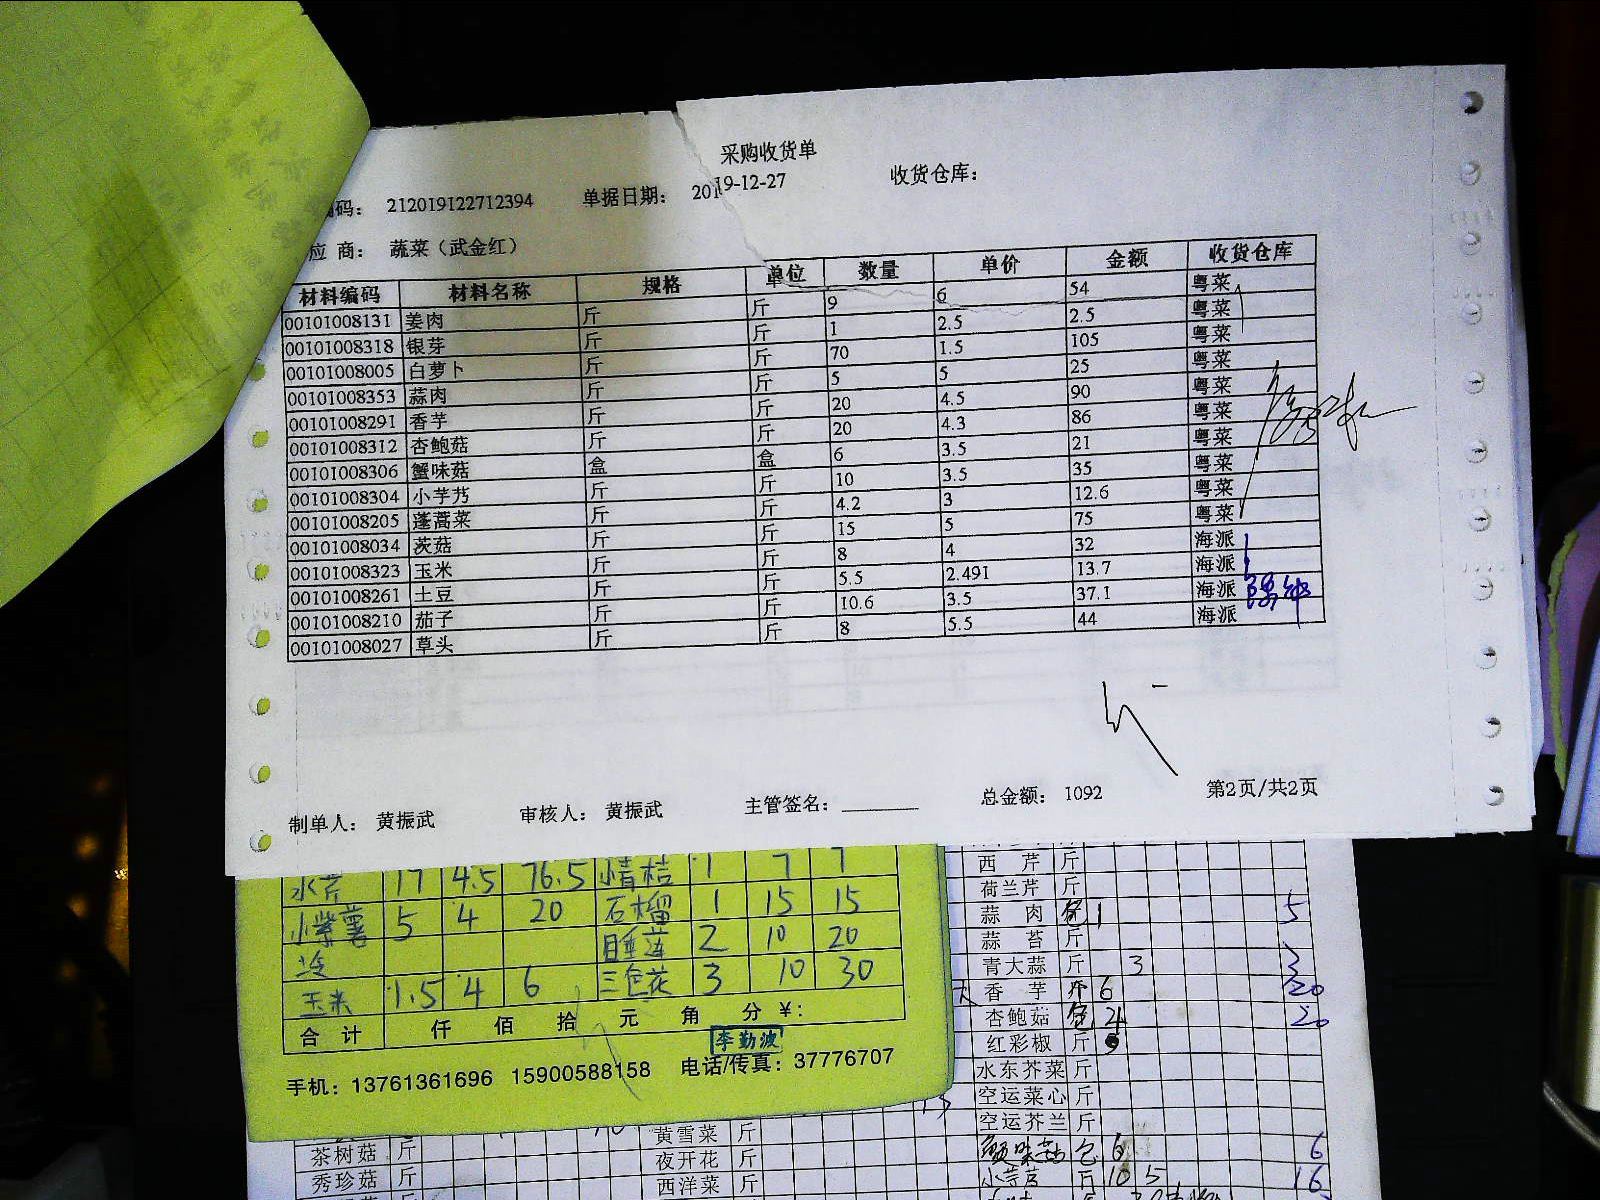 采购收货单
编码： 212019122712394 单据日期： 2019-12-27 收货仓库：
应 商： 蔬菜（武金红）
材料编码 材料名称 规格 单位 数量 单价 金额 收货仓库
00101008131 姜肉 斤 斤 9 6 54 粤菜
00101008318 银芽 斤 斤 1 2.5 2.5 粤菜
00101008005 白萝卜 斤 斤 70 1.5 105 粤菜
00101008353 蒜肉 斤 斤 5 5 25 粤菜
00101008291 香芋 斤 斤 20 4.5 90 粤菜
00101008312 杏鲍菇 斤 斤 20 4.3 86 粤菜
00101008306 蟹味菇 盒 盒 6 3.5 21 粤菜
00101008304 小芋艿 斤 斤 10 3.5 35 粤菜
00101008205 蓬蒿菜 斤 斤 4.2 3 12.6 粤菜
00101008034 茨菇 斤 斤 15 5 75 粤菜
00101008323 玉米 斤 斤 8 4 32 海派
00101008261 土豆 斤 斤 5.5 2.491 13.7 海派
00101008210 茄子 斤 斤 10.6 3.5 37.1 海派
00101008027 草头 斤 斤 8 5.5 44 海派
制单人： 黄振武 审核人： 黄振武 主管签名： 总金额： 1092 第2页/共2页
水芹 17 4.5 76.5 小青桔 1 7 7
小紫薯 5 4 20 石榴 1 15 15
睡莲 2 10 20
玉米 1.5 4 6 三色花 3 10 30
合 计 仟 佰 拾 元 角 分 ¥:
李勤波
手机：13761361696 15900588158 电话/传真：37776707
西 芹 斤
荷兰芹 斤
蒜 肉 1 5
蒜 苔 斤
青大蒜 斤 3 3
香 芋 斤 6 20
杏鲍菇 4 20
红彩椒 斤
水东芥菜 斤
空运菜心 斤
空运芥兰 斤
茶树菇 斤 黄雪菜 斤 蟹味菇 包 6 6
秀珍菇 斤 夜开花 斤 小芋艿 斤 10 5 16
西洋菜 斤